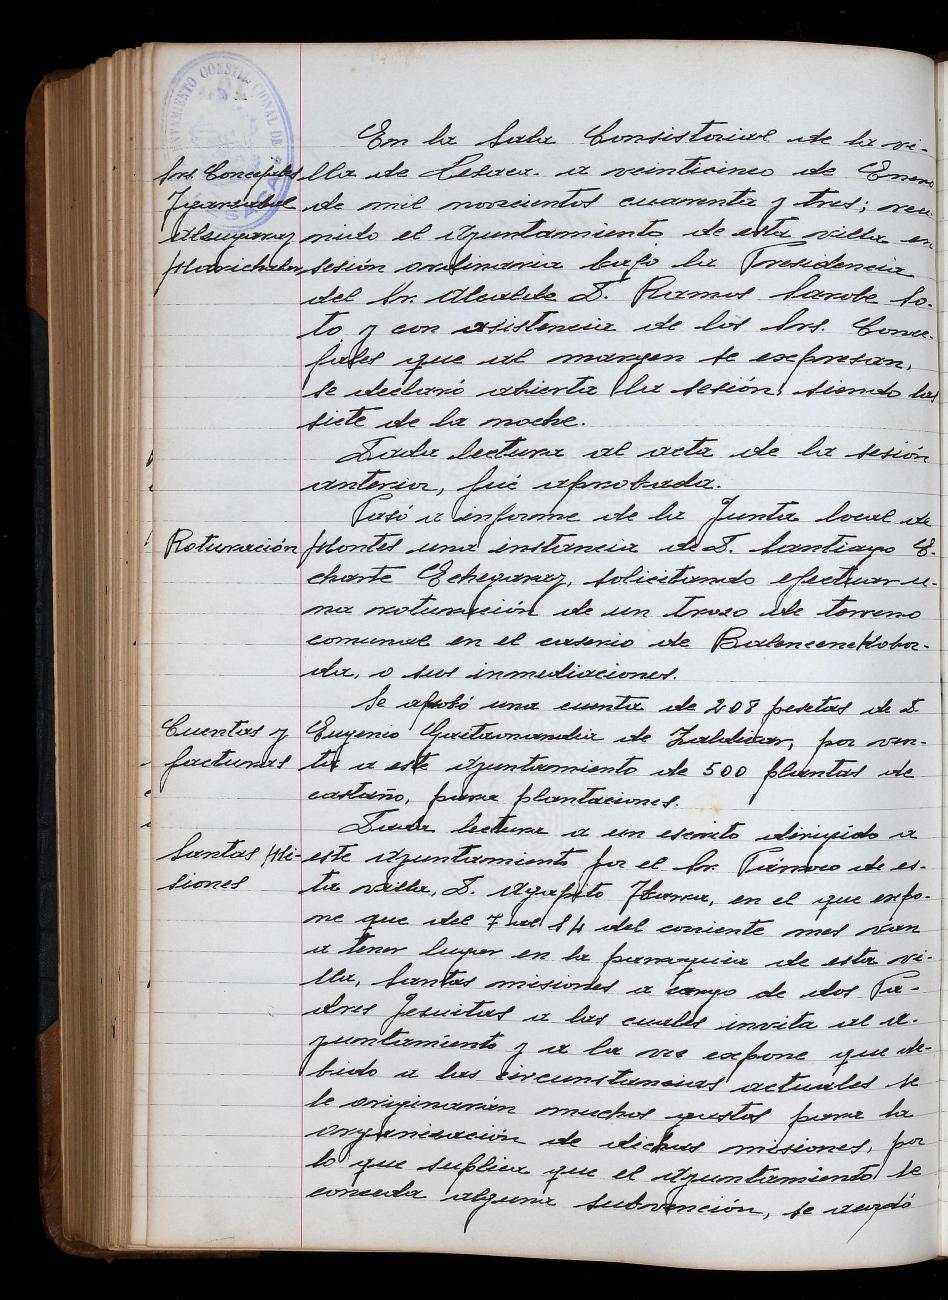 AYUNTAMIENTO CONSTITUCIONAL DE LESACA
En la Sala Consistorial de la vi-
Srs. Concejales
lla de Lesaca a veinticinco de Enero
Igarzabal
de mil novecientos cuarenta y tres; reu-
Alsugaray
nido el Ayuntamiento de esta villa en
Marichalar
sesión ordinaria bajo la Presidencia
del Sr. Alcalde D. Ramos Sarobe So-
to y con asistencia de los Srs. Conce-
jales que al margen se expresan,
se declaró abierta la sesión, siendo las
siete de la noche.
Dada lectura al acta de la sesión
anterior, fué aprobada.
Pasó a informe de la Junta local de
Roturación
Montes una instancia de D. Santiago E-
charte Echegaray, solicitando efectuar u-
na roturación de un trozo de terreno
comunal en el caserio de Balencenekobor-
da, o sus inmediaciones.
Se aprobó una cuenta de 208 pesetas de D.
Cuentas y
Eugenio de Zaldivar, por ven-
facturas
ta a este Ayuntamiento de 500 plantas de
castaño, para plantaciones.
Dada lectura a un escrito dirigido a
Santas Mi-
este Ayuntamiento por el Sr. Párroco de es-
siones
ta villa, D. Agapito, en el que expo-
ne que del 7 al 14 del corriente mes van
a tener lugar en la parroquia de esta vi-
lla, Santas misiones a cargo de dos Pa-
dres Jesuitas a las cuales invita al A-
yuntamiento y a la vez expone que de-
bido a las circunstancias actuales se
le originarán muchos gastos para la
organización de dichas misiones, por
lo que suplica que el Ayuntamiento le
conceda alguna subvención, se acordó